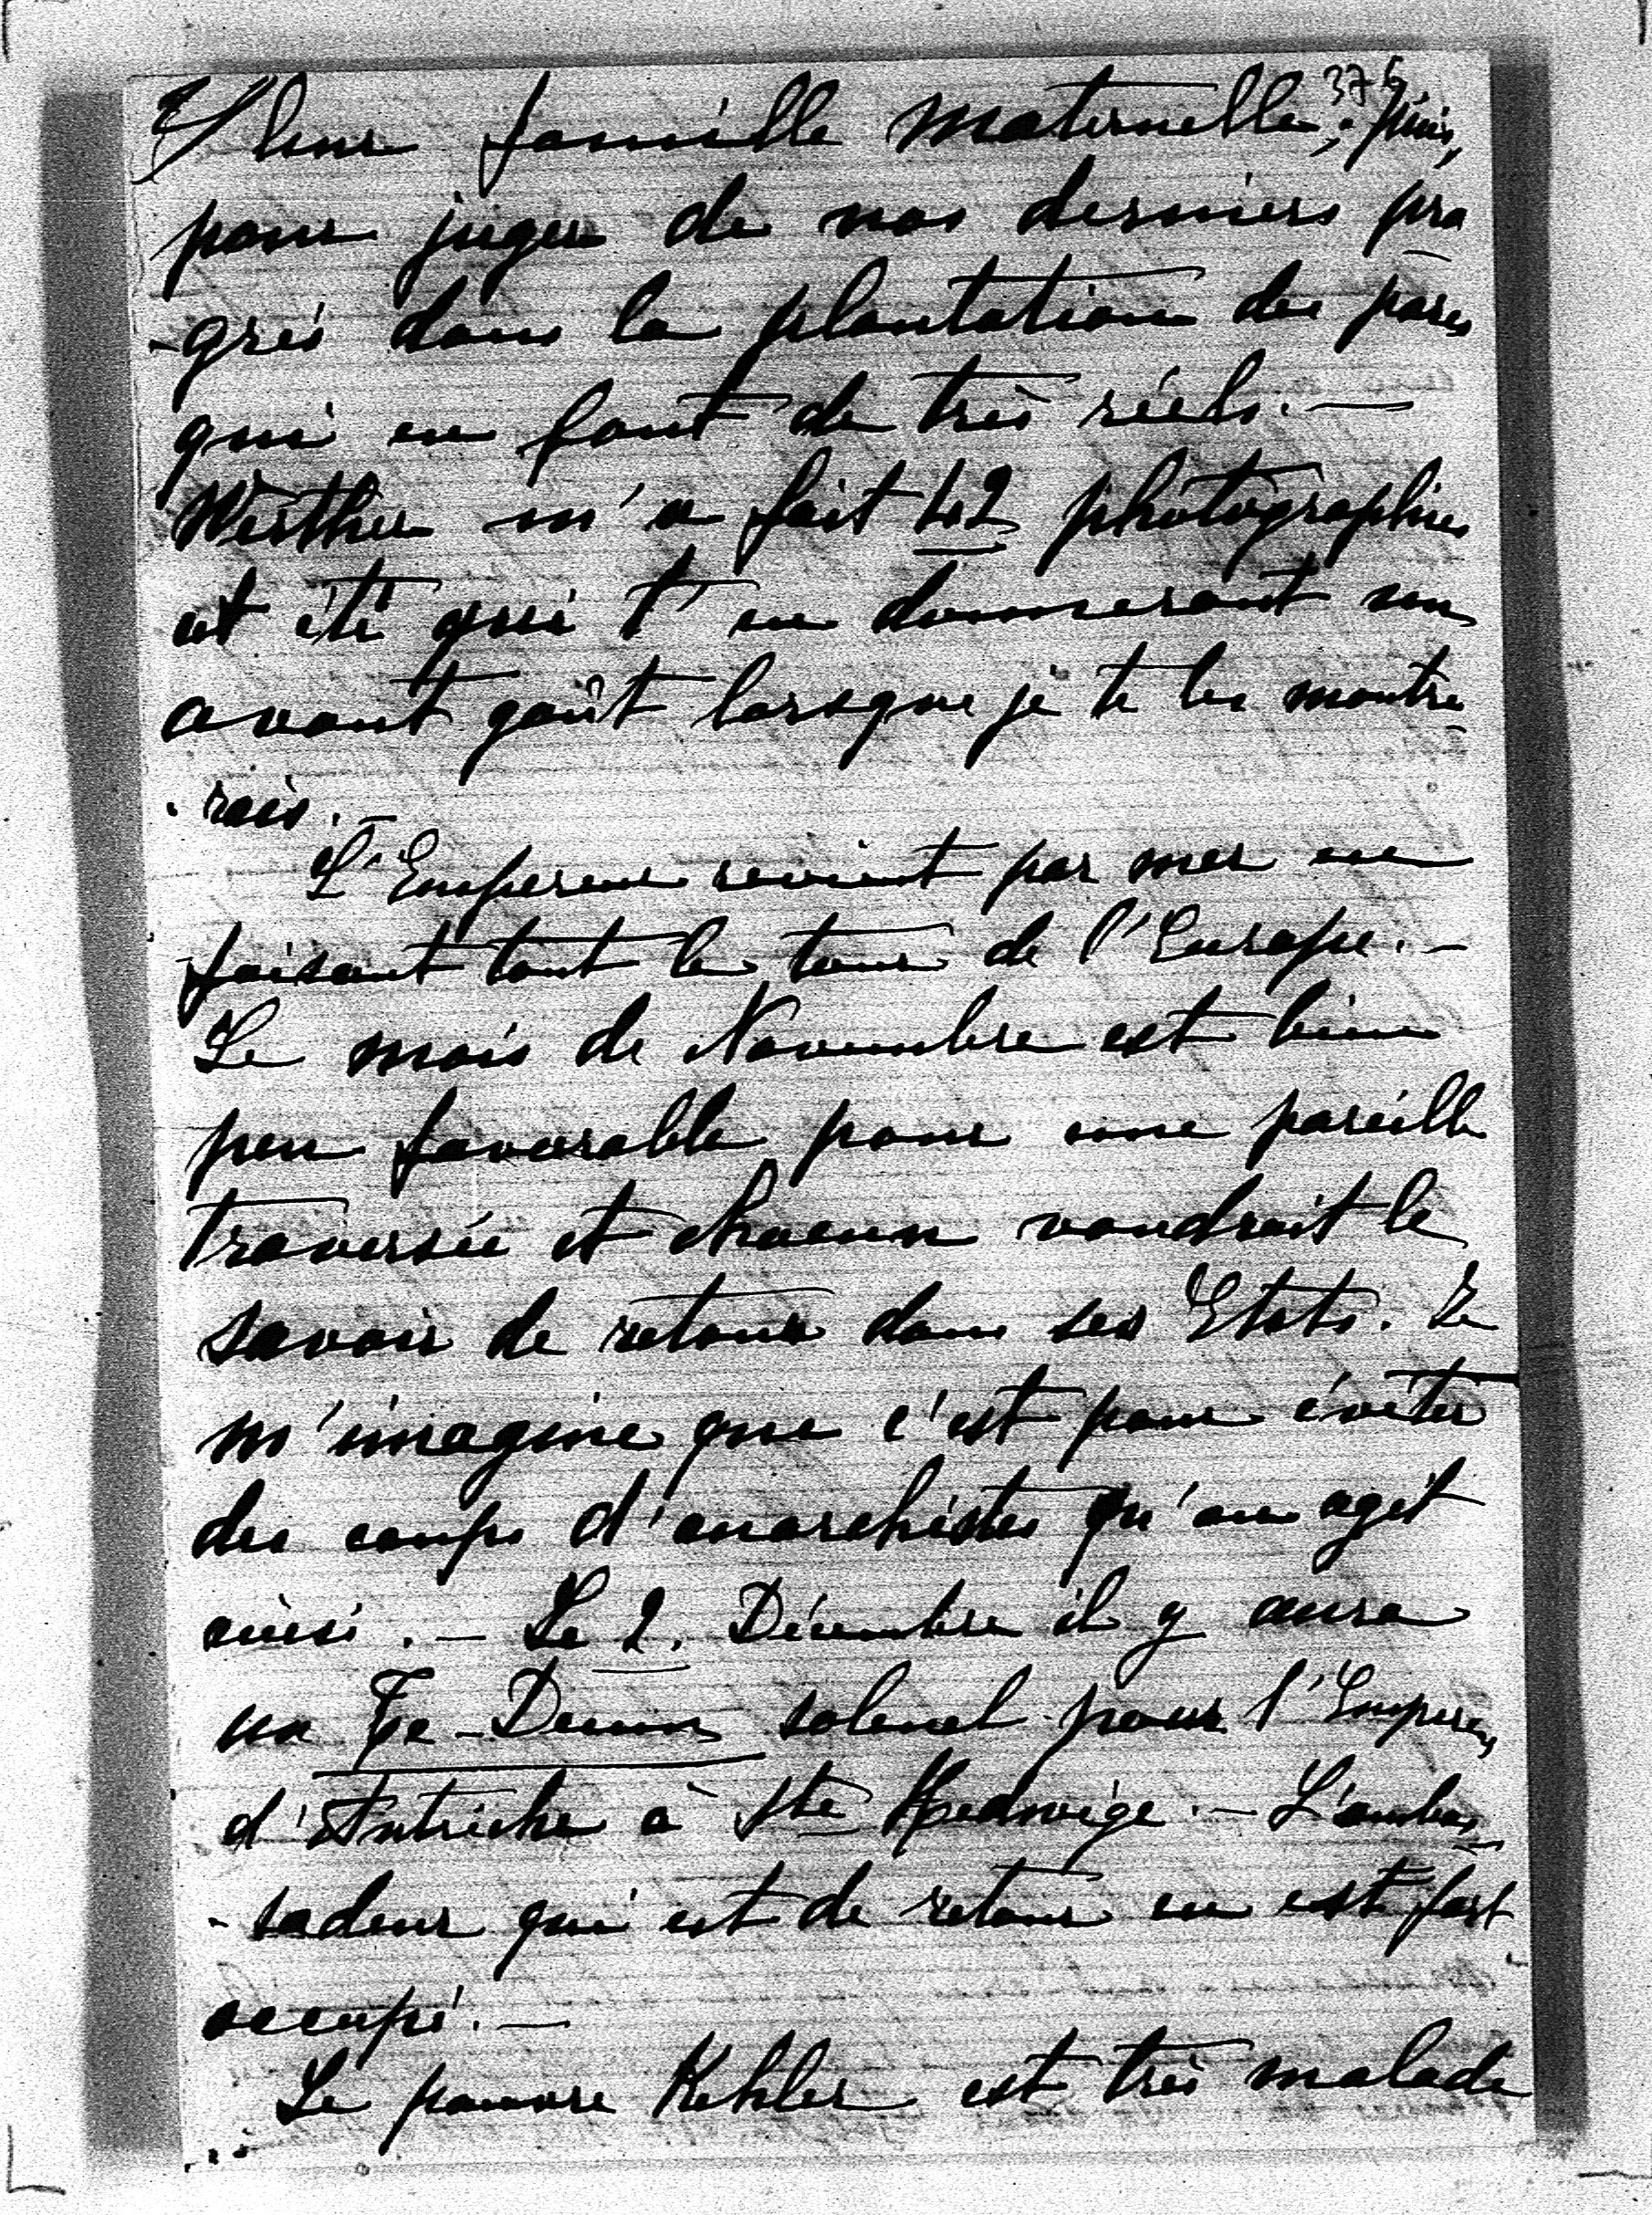 376
2/ leur famille maternelle; puis,
pour juger de nos derniers pro
-grés dans la plantation des parcs
qui en font de très réels. —
Werther m'a fait 42 photographies
cet été qui t'en donneront un
avant goût lorsque je te les montre
-rais. —
L'Empereur revient par mer en
faisant tout le tour de l'Europe. —
Le mois de Novembre est bien
peu favorable pour une pareille
traversée et chacun voudrait le
savoir de retour dans ses Etats. Je
m'imagine que c'est pour éviter
des coups d'anarchistes qu'on agit
ainsi. — Le 2. Décembre il y aura
un Te-Deum solenel pour l'Empereur
d'Autriche à Ste Hedwige. — L'ambas
-sadeur qui est de retour en est fort
occupé. —
Le pauvre Kehler est très malade